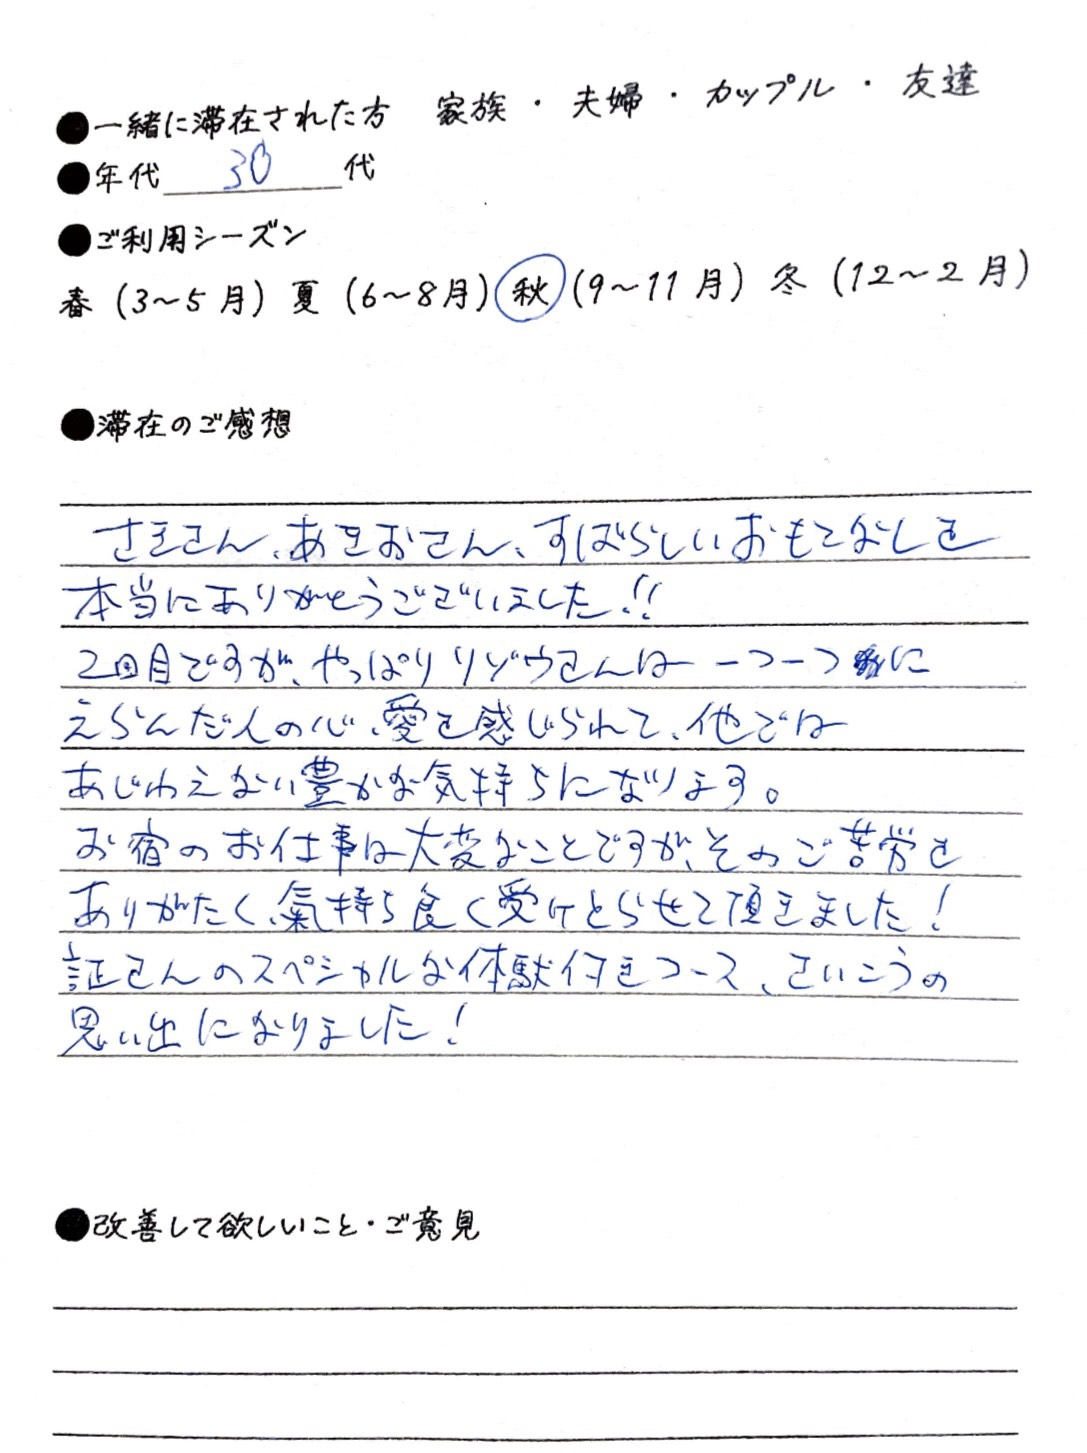 ●一緒に滞在された方 家族・夫婦・カップル・友達
●年代 30 代
●ご利用シーズン
春(3〜5月)夏(6〜8月)秋(9〜11月)冬(12〜2月)
●滞在のご感想
さきさん、あきおさん、すばらしいおもてなしを
本当にありがとうございました!!
2回目ですが、やっぱりリゾウさんは一つ一つに
えらんだ人の心、愛を感じられて、他では
あじわえない豊かな気持ちになります。
お宿のお仕事は大変なことですが、そのご苦労を
ありがたく、氣持ち良く受けとらせて頂きました!
証さんのスペシャルな体験付きコース、さいこうの
思い出になりました!
●改善して欲しいこと・ご意見